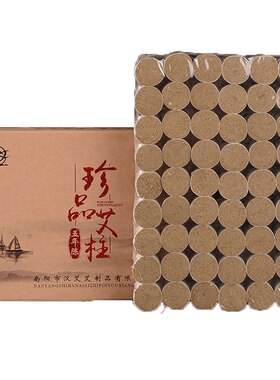 珍品艾柱
五年陈
南阳市汉艾艾制品有限
NANYANGSHIHANAIAIZHIPINYOUXIANG